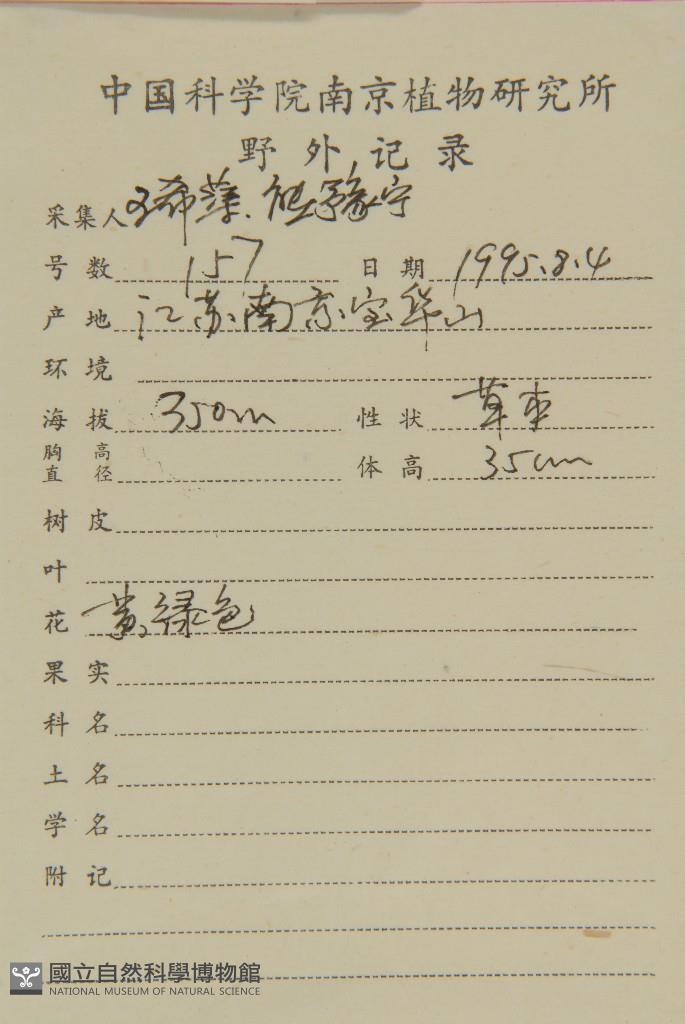 中国科学院南京植物研究所
野外记录
采集人 王希蕖、熊豫宁
号数 157 日期 1995.8.4
产地 江苏南京宝华山
环境
海拔 350m 性状 草本
胸高直径 体高 35cm
树皮
叶
花 黄绿色
果实
科名
土名
学名
附记
國立自然科學博物館
NATIONAL MUSEUM OF NATURAL SCIENCE